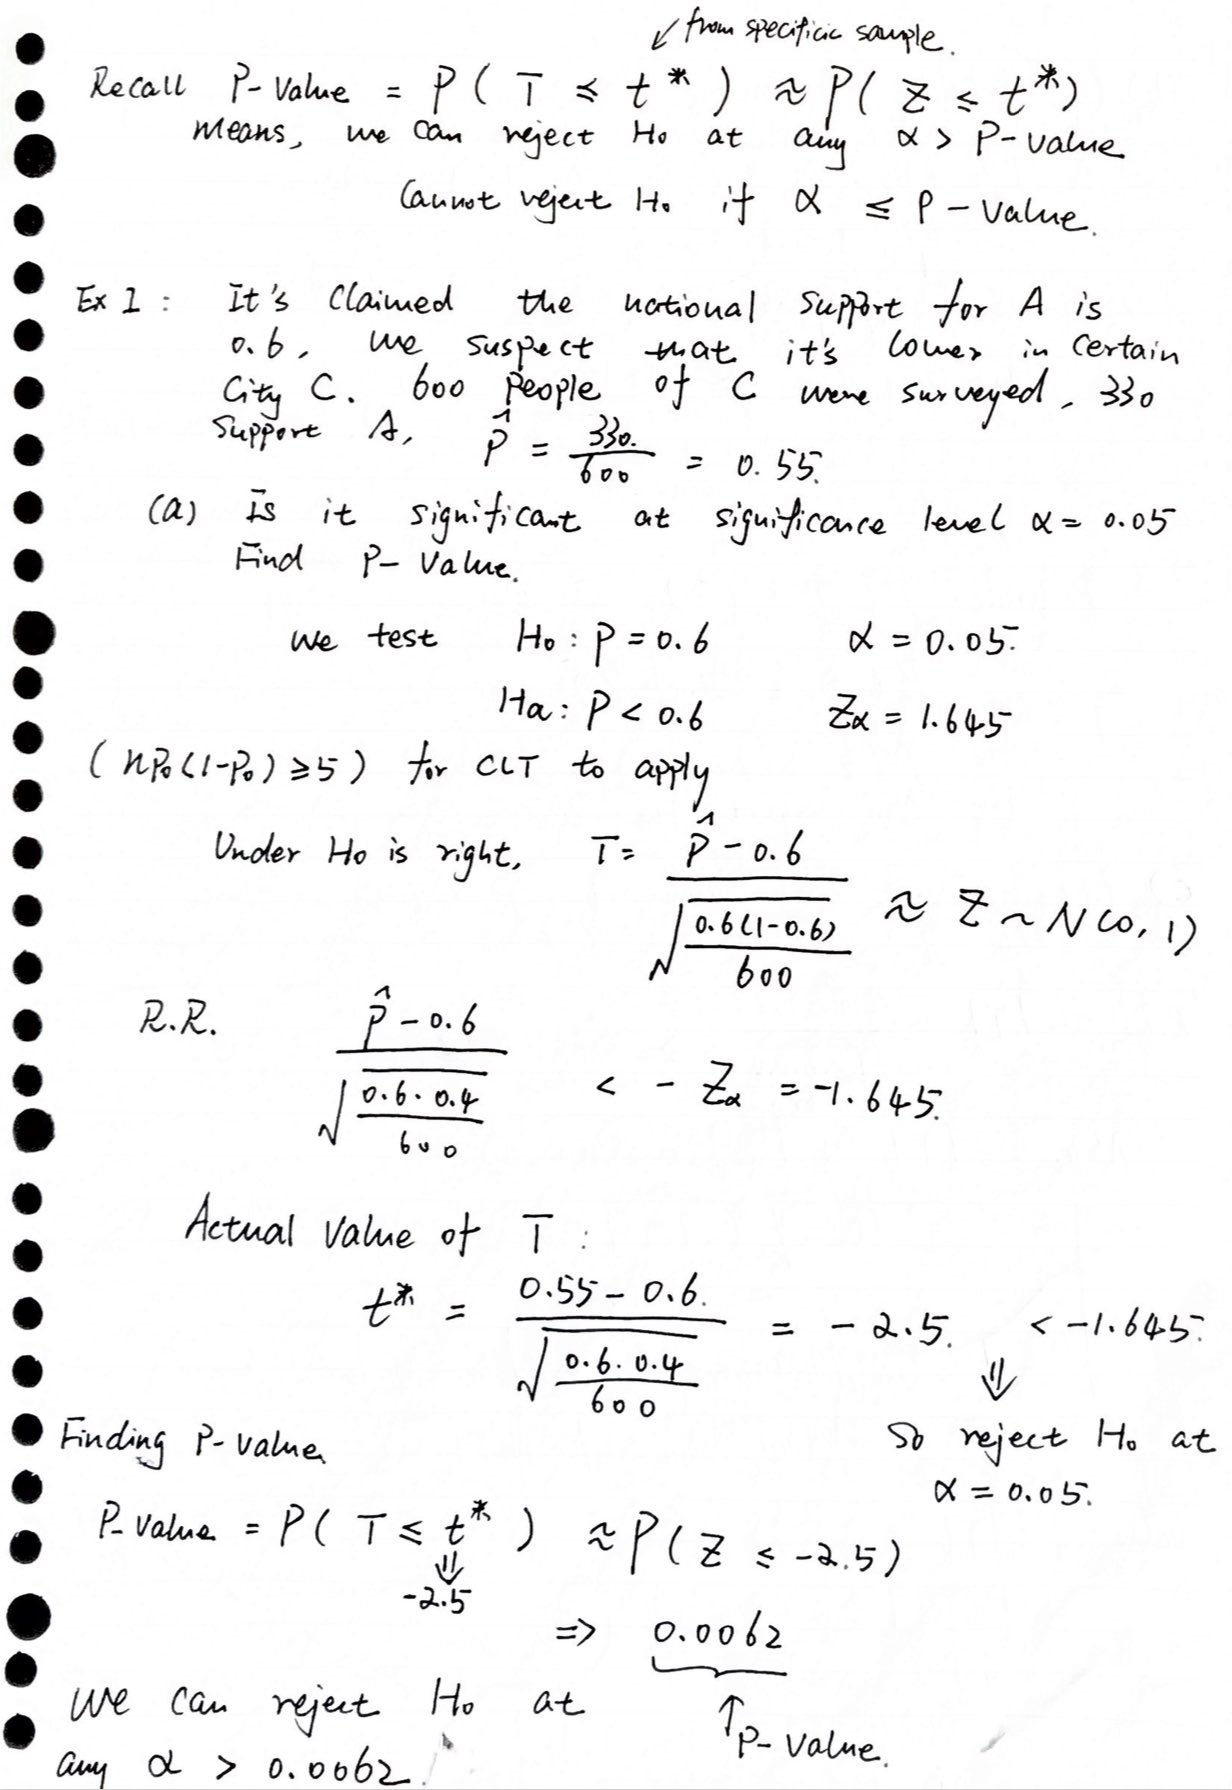 ↙ from specificic sample.
Recall P-Value = P( T ≤ t* ) ≈ P( Z ≤ t*)
means, we can reject H₀ at any α > P-value
Cannot reject H₀ if α ≤ P-value.
Ex 1 : It's claimed the national support for A is
0.6, We suspect that it's lower in certain
City C. 600 people of C were surveyed, 330
support A, p̂ = 330/600 = 0.55.
(a) Is it significant at significance level α = 0.05
Find P-Value.
We test H₀ : P = 0.6 α = 0.05.
Ha : P < 0.6 Zα = 1.645
( nP₀(1-P₀) ≥ 5 ) for CLT to apply
Under H₀ is right, T = (p̂ - 0.6) / √(0.6(1-0.6)/600) ≈ Z ~ N(0, 1)
R.R. (p̂ - 0.6) / √(0.6 · 0.4/600) < - Zα = -1.645.
Actual Value of T :
t* = (0.55 - 0.6.) / √(0.6 · 0.4/600) = - 2.5. < -1.645.
⇓
Finding P-value
So reject H₀ at
α = 0.05.
P-value = P( T ≤ t* ) ≈ P( Z ≤ -2.5)
⇓
-2.5
=> 0.0062
↑ P-value.
We can reject H₀ at
any α > 0.0062.